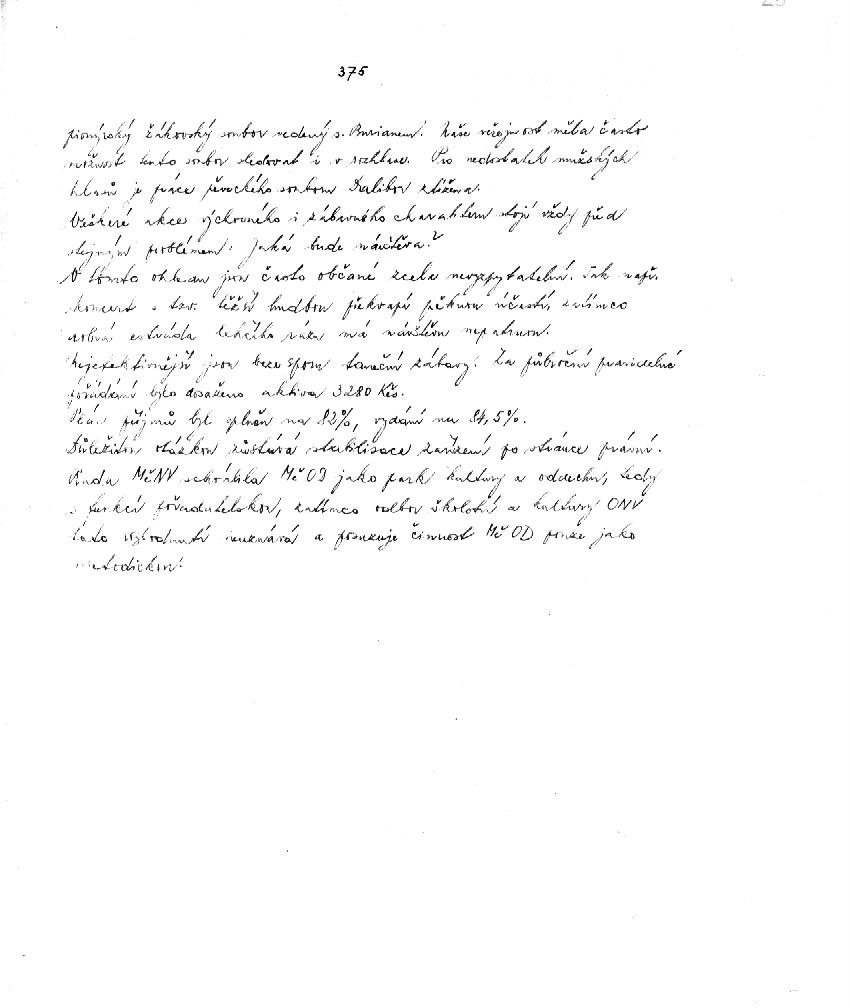 375
pionýrský žákovský soubor vedený s. Burianem. Naše veřejnost měla často
možnost tento soubor sledovat i v rozhlase. Pro nedostatek mužských
hlasů je práce pěveckého souboru Dalibor ztížena.
Veškeré akce výchovného i zábavného charakteru stojí vždy před
stejným problémem: Jaká bude návštěva?
V tomto ohledu jsou často občané zcela nevyzpytatelní. Tak např.
koncert s tzv. těžší hudbou překvapí pěknou účastí, zatímco
dobrá estráda lehčího rázu má návštěvu nepatrnou.
Nejefektivnější jsou beze sporu taneční zábavy. Za půlroční pravidelné
pořádání bylo dosaženo aktiva 3280 Kčs.
Plán příjmů byl splněn na 82%, vydání na 84,5%.
Důležitou otázkou zůstává stabilisace zařízení po stránce právní.
Rada MěNV schválila MěOD jako park kultury a oddechu, tedy
s funkcí pořadatelskou, zatímco odbor školství a kultury ONV
toto rozhodnutí neuznává a posuzuje činnost MěOD pouze jako
metodickou.